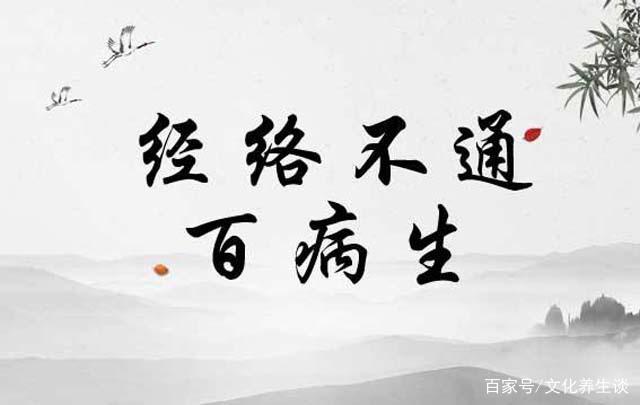 经络不通
百病生
百家号/文化养生谈